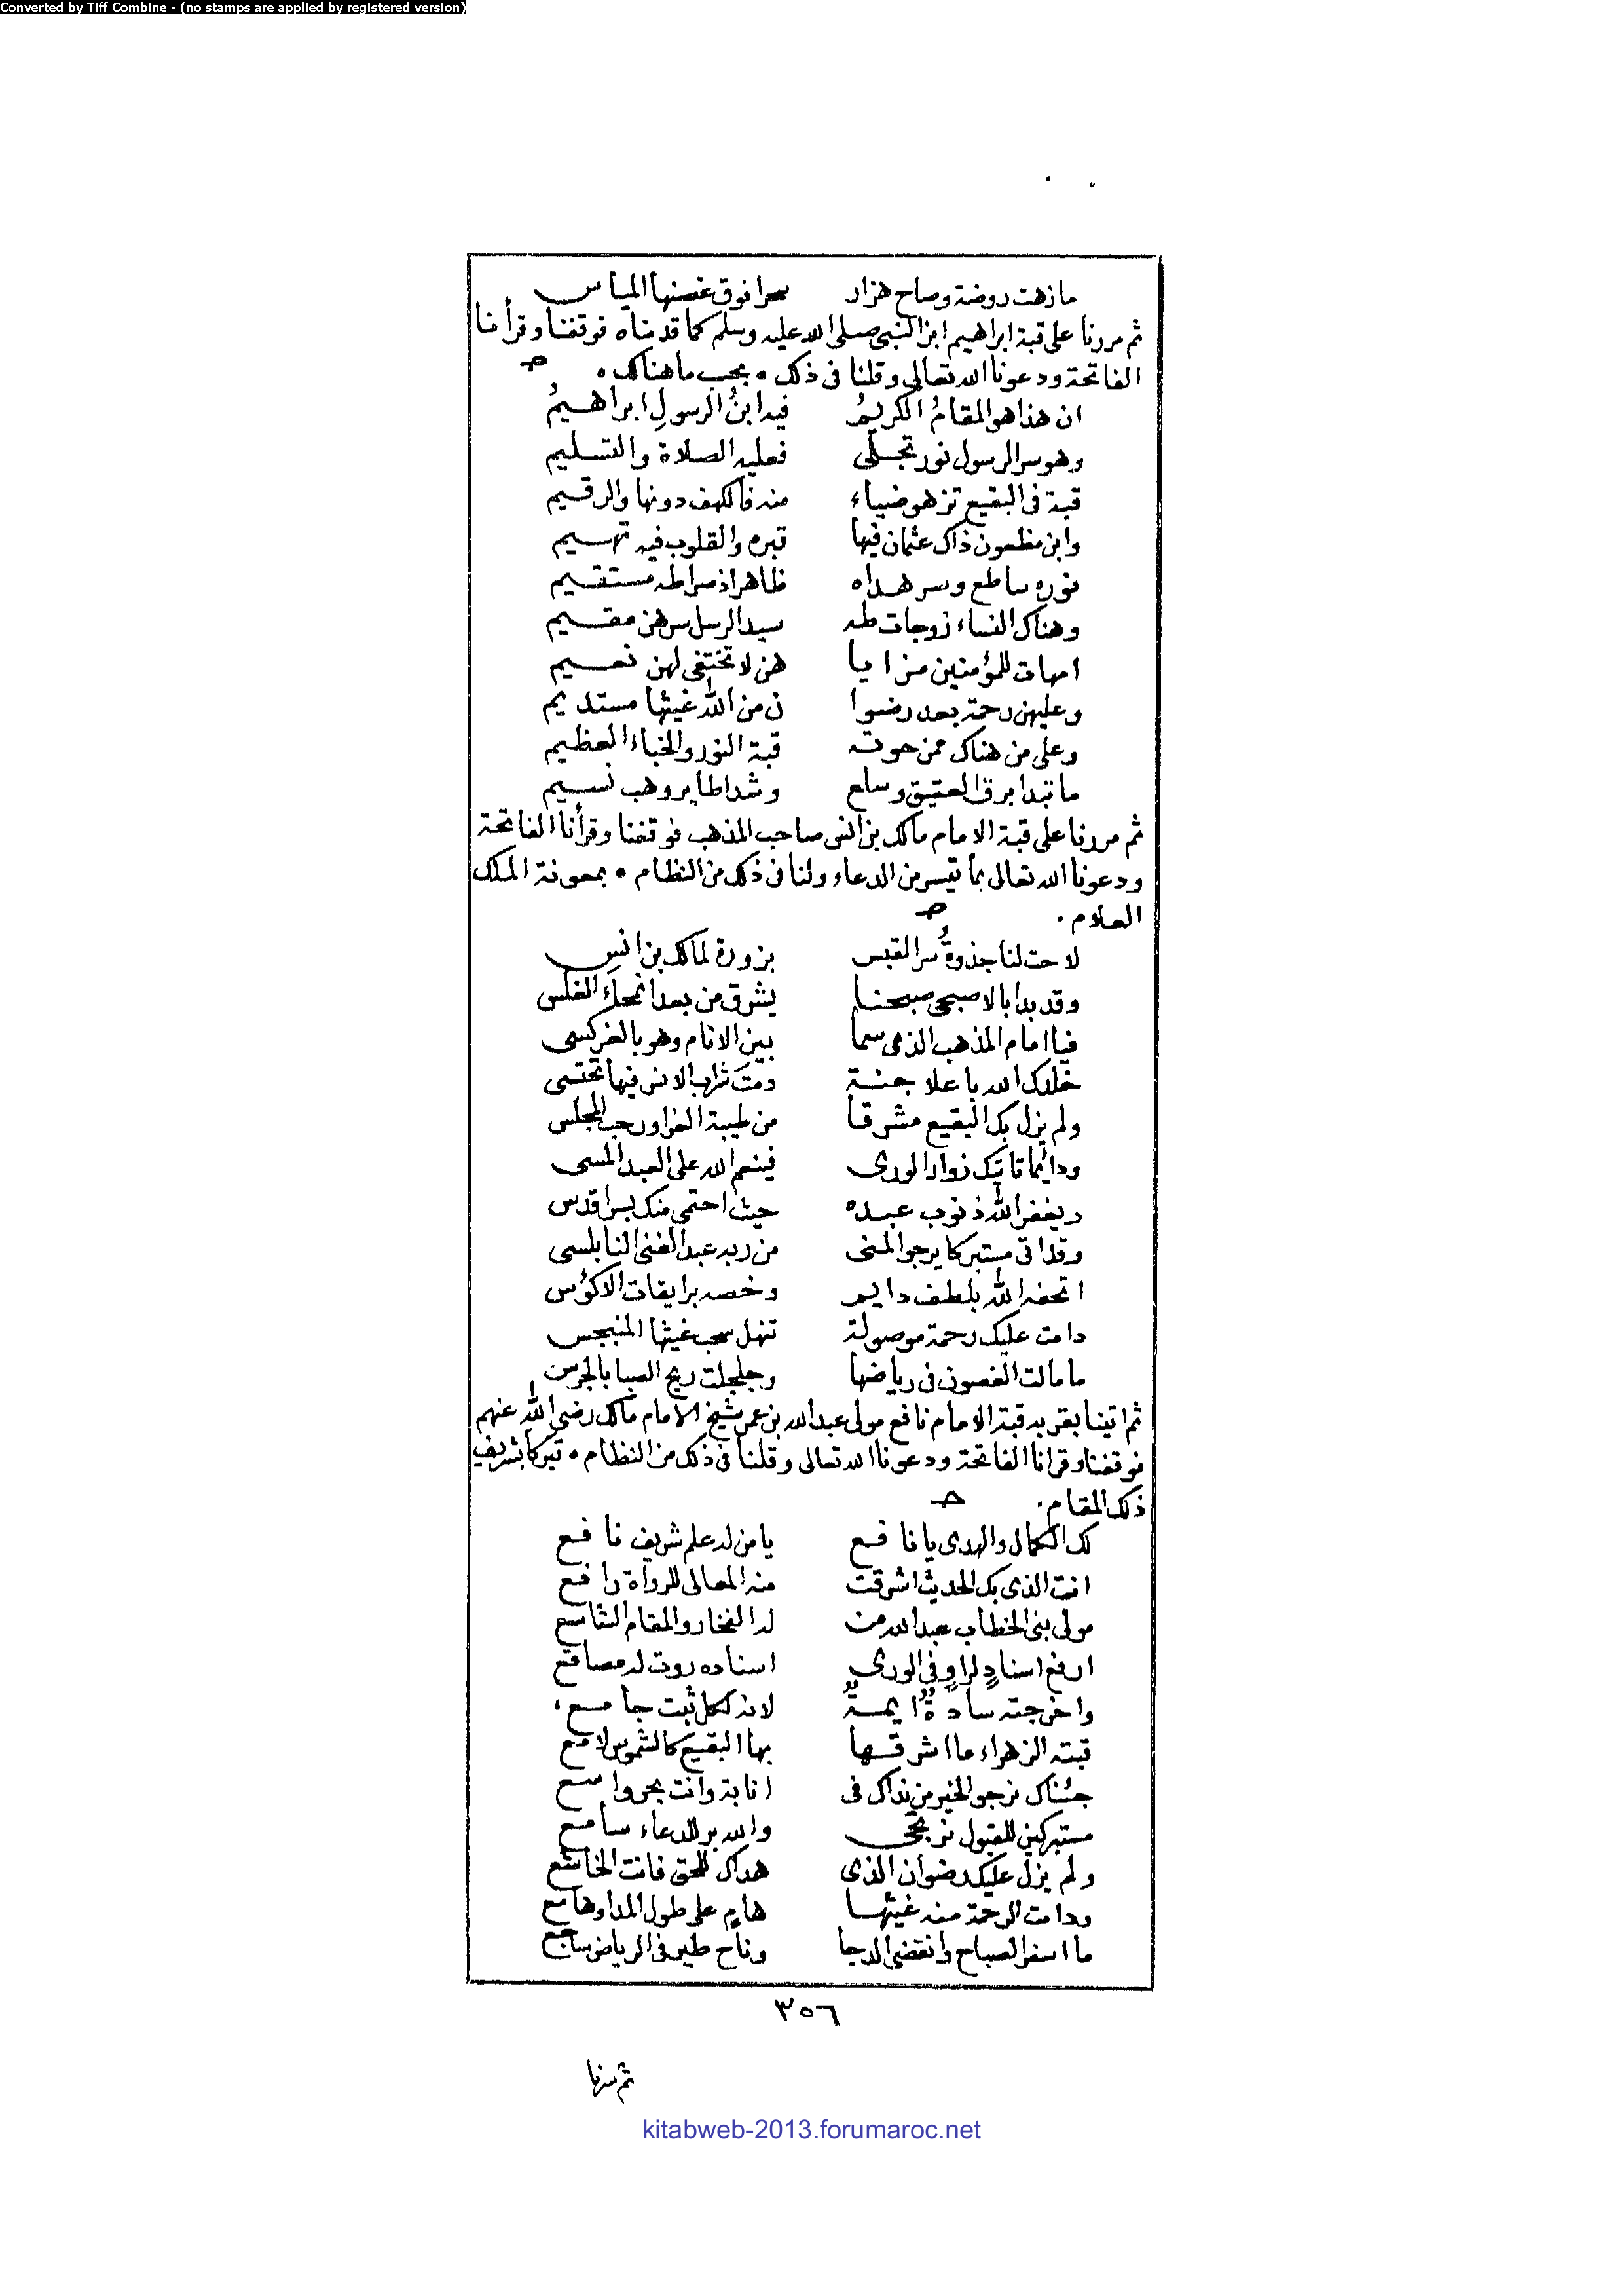 Converted by Tiff Combine - (no stamps are applied by registered version)
ما زهت روضة وصاح هزار سحرا فوق غصنها المياس
ثم مررنا على قبة ابراهيم ابن النبي صلى الله عليه وسلم كما قدمناه فوقفنا وقرأنا
الفاتحة ودعونا الله تعالى وقلنا فى ذلك • بحسب ما هناك •
ان هذا هو المقامُ الكريمُ فيه ابنُ الرسولِ ابراهيمُ
وهو سر الرسول نور تجلى فعليه الصلاة والتسليم
قبة فى البقيع تزهو ضياء منه فالكهف دونها والرقيم
وابن مظعون ذاك عثمان فيها قبره والقلوب فيه تهسيم
نوره ساطع وسر هداه ظاهر اذ صراطه مستقيم
وهناك النساء زوجات طه سيد الرسل سرهن مقيم
امهات للمؤمنين مزايا هن لا تختفى لهن نعيم
وعليهن رحمة بعد رضوا ن من الله غيثها مستديم
وعلى من هناك ممن حوته قبة النور والخباء العظيم
ما تبدا برق العقيق وسلع وشدا طاير وهب نسيم
ثم مررنا على قبة الامام مالك بن انس صاحب المذهب فوقفنا وقرأنا الفاتحة
ودعونا الله تعالى بما تيسر من الدعاء ولنا فى ذلك من النظام • بمعونة الملك
العلام •
لاحت لنا جذوةُ سر القبس بزورة لمالك بن انس
وقد بدا بالاصبحى صبحنا يشرق من بعد انمحاء الغلس
فيا امام المذهب الذى سما بين الانام وهو بالعز كسى
خلدك الله باعلا جنة دمت شراب الانس فيها تحتسى
ولم يزل بك البقيع مشرقا من طيبة الغرا ورحب المجلس
ودائما تاتيك زوار الورى فينعم الله على العبد المسى
ويغفر الله ذنوب عبده حيث احتمى منك بسر اقدس
وقد اتى مستبركا يرجو المنى من ربه عبد الغنى النابلسى
اتحفه الله بلطف دايم وخصه برايقات الاكؤس
دامت عليك رحمة موصولة تنهل سحب غيثها المنبجس
ما مالت الغصون فى رياضها وجلجلت ريح الصبا بالجرس
ثم اتينا بقربه قبة الامام نافع مولى عبد الله بن عمر شيخ الامام مالك رضى الله عنهم
فوقفنا وقرانا الفاتحة ودعونا الله تعالى وقلنا فى ذلك من النظام • تبركا بشريف
ذلك المقام •
لك الكمال والهدى يا نافع يا من له علم شريف نافع
انت الذى بك الحديث اشرقت منه المعالى للرواة رافع
مولى بنى الخطاب عبد الله من له الفخار والمقام الشاسع
ارفع اسنادٍ لراوٍ فى الورى اسناده روت له مصاقع
واخرجته سادةٌ ايمةٌ لانه لكل ثبت جامع
قبته الزهراء ما اشرقها بها البقيع كالشموس لامع
جئناك نرجو الخير من نداك فى انابة وانت بحر واسع
مستبركين للقبول نرتجى والله بر للدعاء سامع
ولم يزل عليك رضوان الذى هداك للحق فانت الخاشع
ودامت الرحمة منه غيثها هامٍ على طول المدا وهامع
ما اسفر الصباح وانقضى الدجا وناح طير فى الرياض ساجع
٣٥٦
ثم سرنا
kitabweb-2013.forumaroc.net